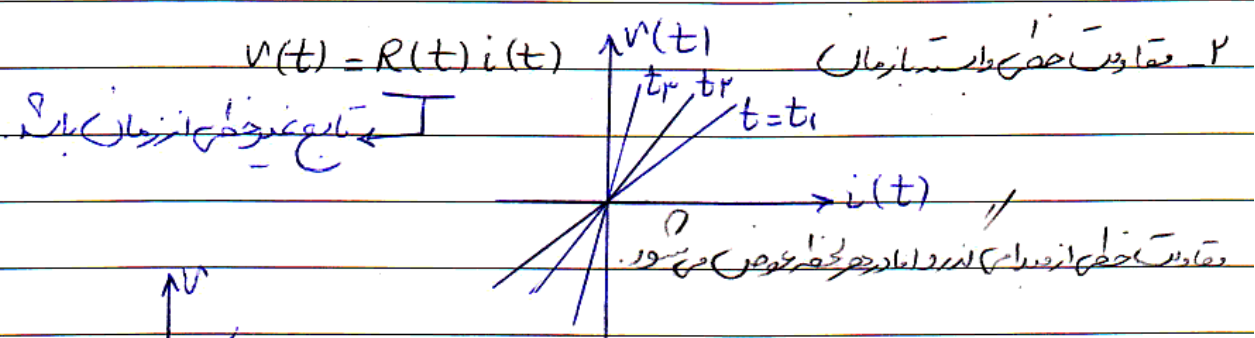 ۲_ مقاومت خطی وابسته بازمان
v(t) = R(t) i(t)
v(t)
t۳ t۲
t = t۱
تابع غیرخطی از زمان باشد.
i(t)
مقاومت خطی از مبدا می گذرد اما در هر لحظه عوض می شود.
v